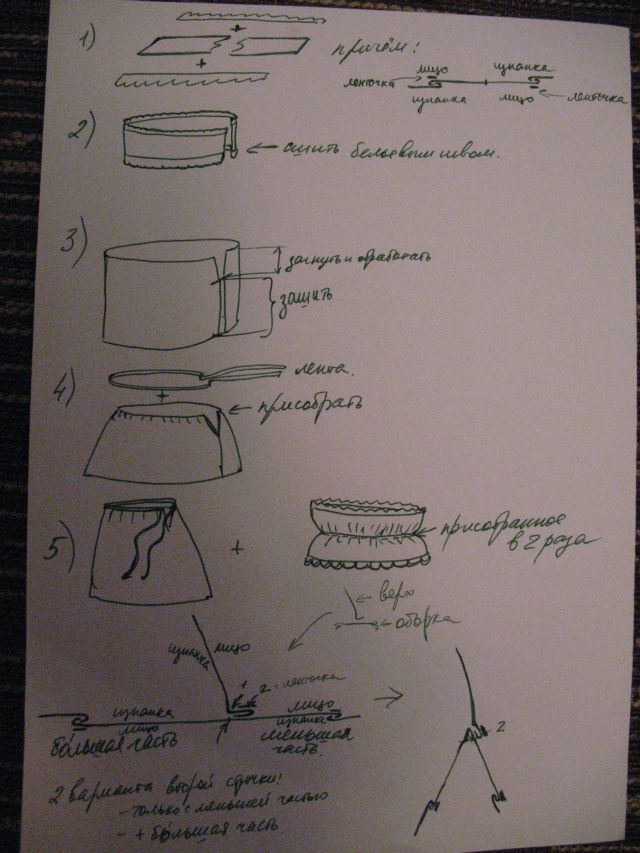 1)
+
+
причём:
лицо изнанка
ленточка
изнанка лицо ленточка
2)
сшить бельевым швом.
3)
загнуть и обработать
зашить
4)
лента.
+
присобрать
5)
+
присобранное
в 2 раза
верх
оборка
изнанка лицо
1 2 + ленточка
изнанка лицо
лицо изнанка
бо́льшая часть меньшая
часть.
2
2 варианта второй строчки:
- только с меньшей частью
- + бо́льшая часть.